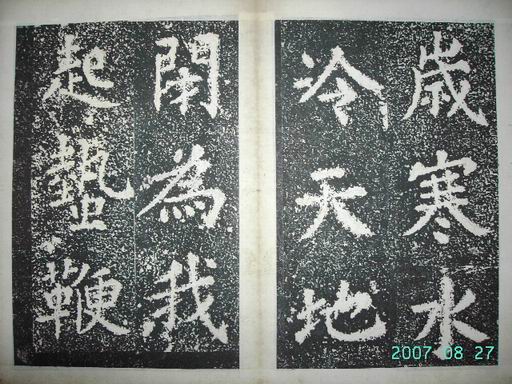 歳寒水
冷天地
閉為我
起蟄鞭
2007 08 27